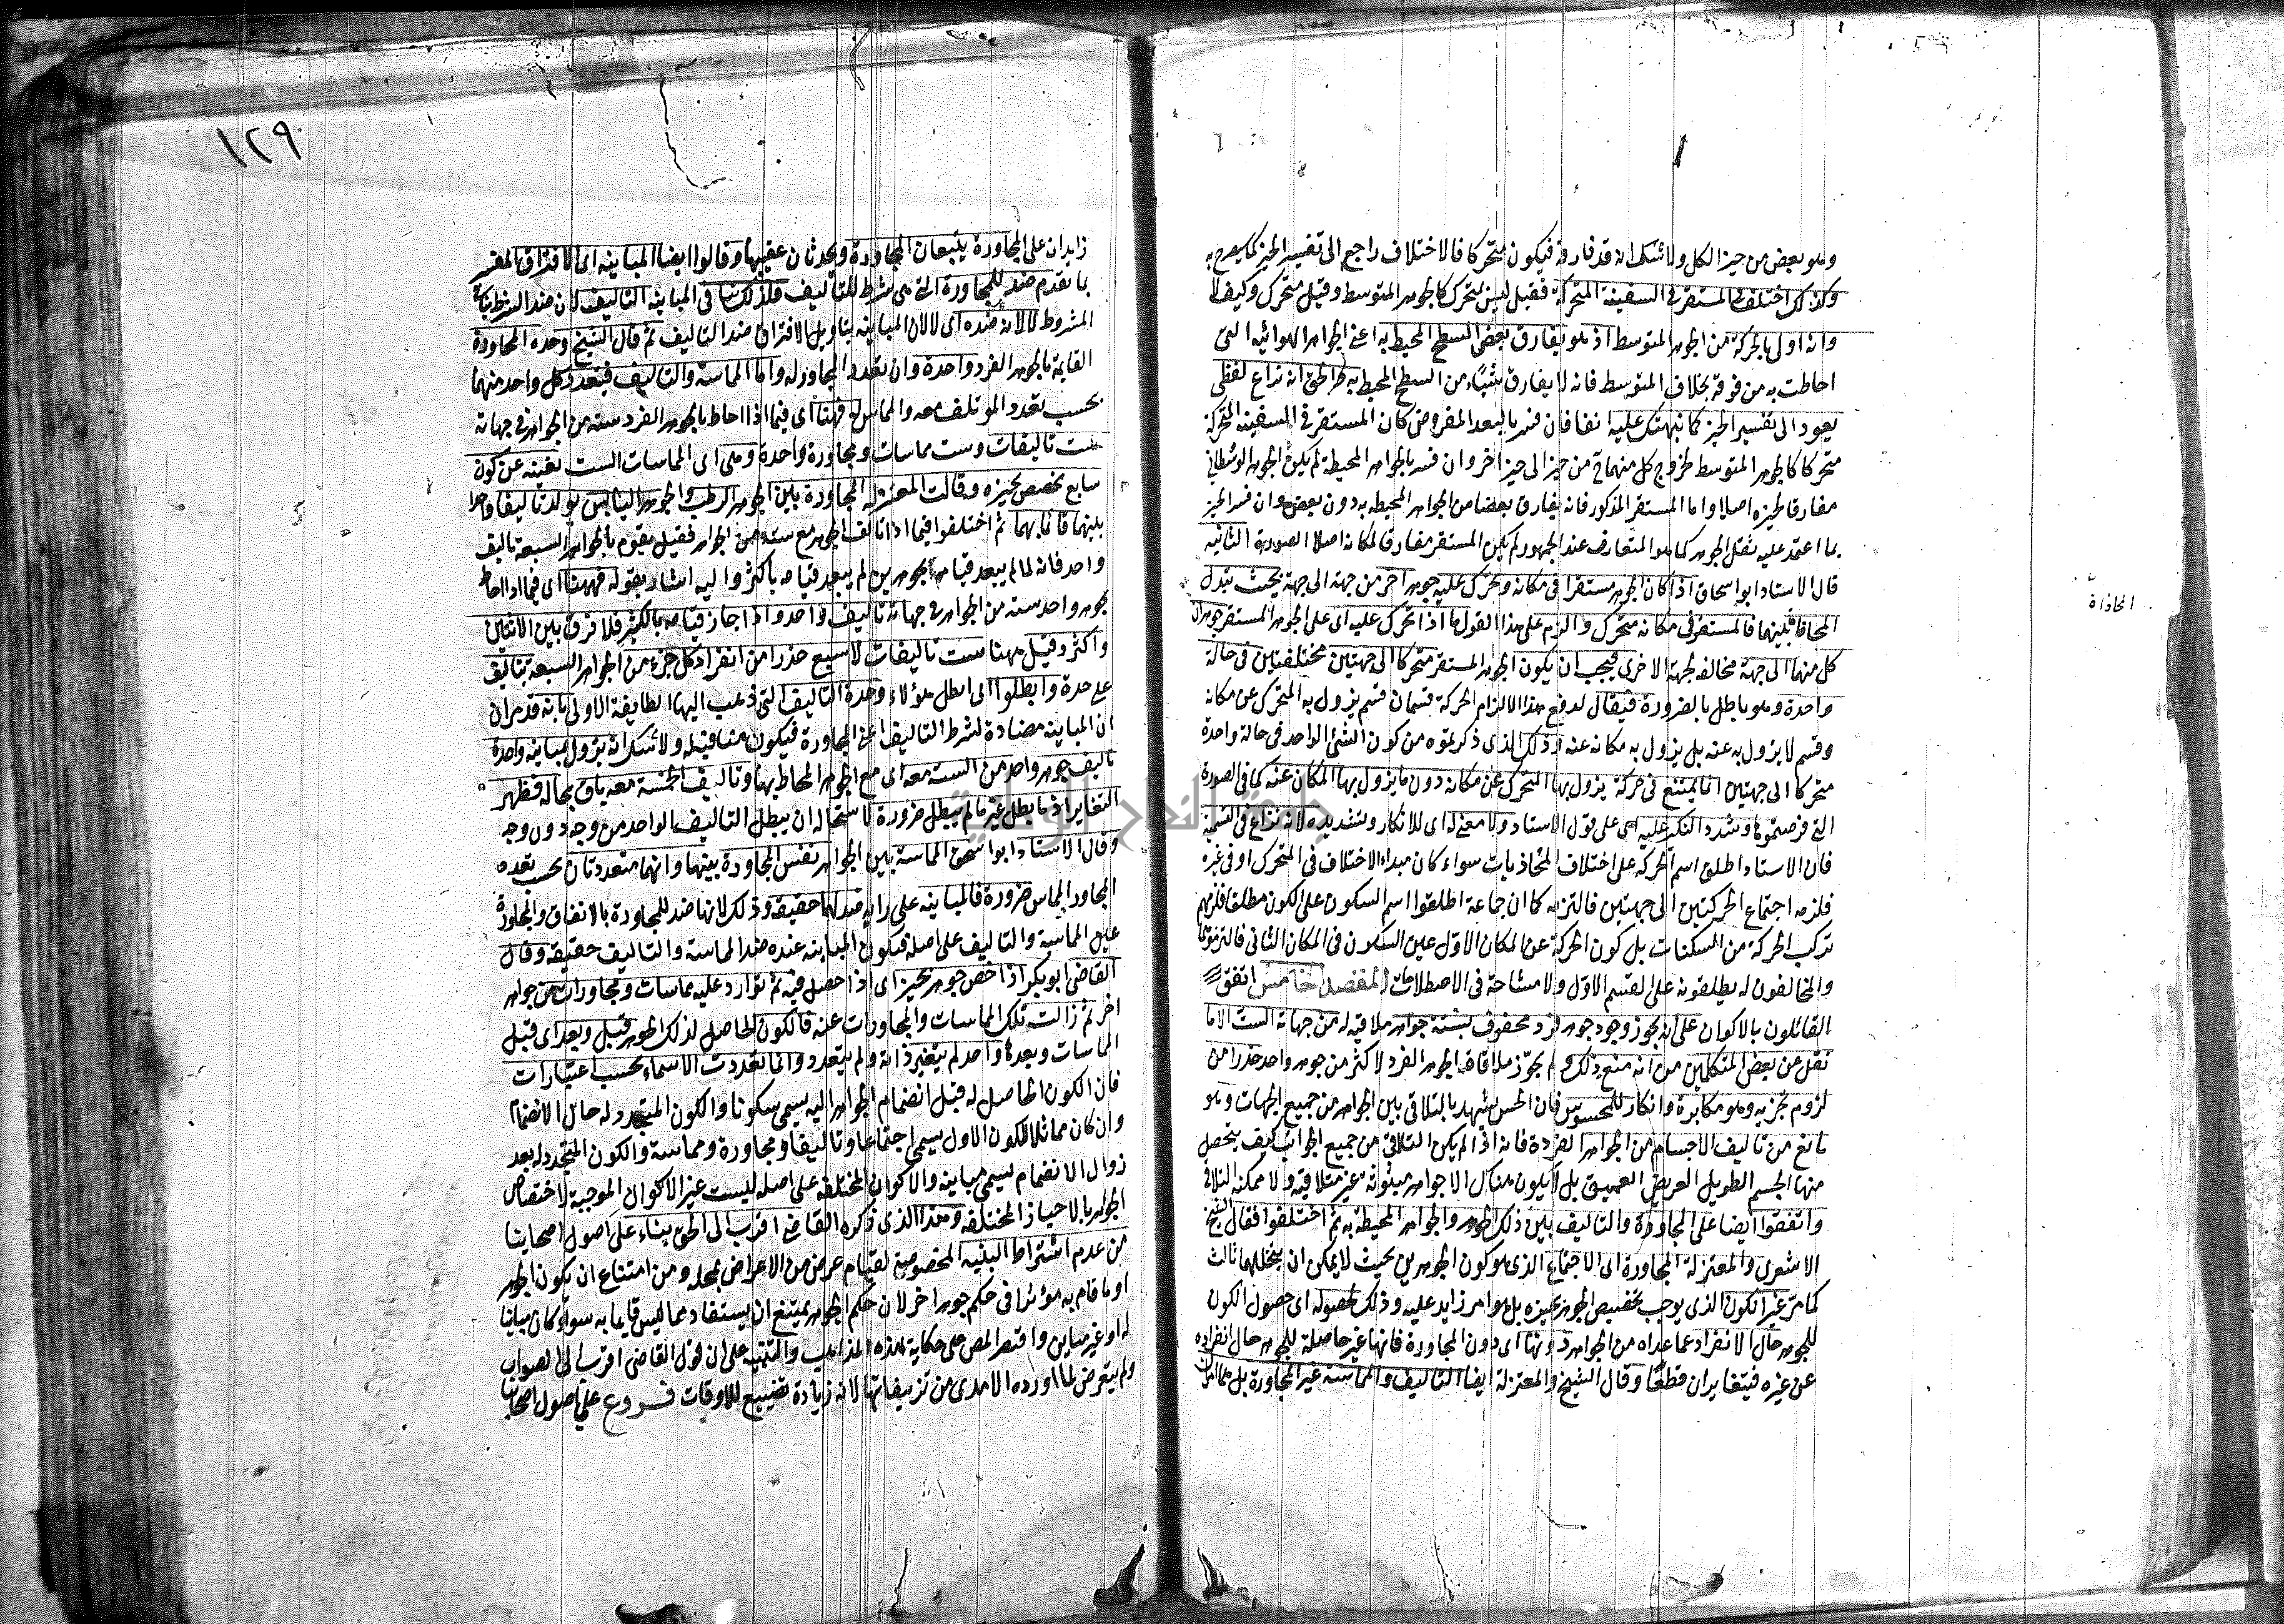 وهو بعض من حيز الكل ولا شك انه قد فارقه فيكون متحركا فالاختلاف راجع الى تفسير الحيز كما يصرح به
وكذلك اختلف في المستقر في السفينة المتحركة فقيل ليس بمتحرك كالجوهر المتوسط وقيل متحرك وكيف لا
وانه اولى بالحركة من الجوهر المتوسط اذ هو يفارق بعض السطح المحيط به اعني الجواهر الهوائيه التي
احاطت به من فوقه بخلاف المتوسط فانه لا يفارق شيئا من السطح المحيط به والحق انه نزاع لفظي
يعود الى تفسير الحيز كما نبهتك عليه انفا فان فسر بالبعد المفروض كان المستقر في السفينه المتحركة
متحركا كالجوهر المتوسط لخروج كل منهما من حيز الى حيز اخر وان فسر بالجواهر المحيطة لم يكن الجوهر الوسطاني
مفارقا لحيزه اصلا واما المستقر المذكور فانه يفارق بعضا من الجواهر المحيطه به دون بعض وان فسر الحيز
بما اعتمد عليه ثقل الجوهر كما هو المتعارف عند الجمهور لم يكن المستقر مفارقا لمكانه اصلا الصورة الثانيه
قال الاستاد ابو اسحاق اذا كان الجوهر مستقرا في مكانه وتحرك عليه جوهر اخر من جهة الى جهة بحيث تبدل
المحاذاة
المحاذ بينهما فالمستقر في مكانه متحرك والزم على هذا القول ما اذا تحرك عليه اى على الجوهر المستقر جوهران
كل منهما الى جهة مخالفه لجهة الاخرى فيجب ان يكون الجوهر المستقر متحركا الى جهتين مختلفتين في حالة
واحدة وهو باطل بالضرورة فيقال لدفع هذا الالزام الحركة قسمان قسم يزول به المتحرك عن مكانه
وقسم لا يزول به عنه بل يزول به مكانه عنه وذلك الذى ذكرتموه من كون الشئ الواحد في حالة واحدة
متحركا الى جهتين انما يمتنع في حركة يزول بها المتحرك عن مكانه دون ما يزول بها المكان عنه كما في الصورة
التي فرضتموها وشدد النكير عليه اى على قول الاستاد ولا معنى له اى للانكار وتشديده لانه نزاع في التسمية
فان الاستاد اطلق اسم الحركه على اختلاف المحاذيات سواء كان مبداء الاختلاف في المتحرك او في غيره
فلزمه اجتماع الحركتين الى جهتين فالتزمه كما ان جماعة اطلقوا اسم السكون على الكون مطلقا فلزمهم
تركب الحركة من السكنات بل كون الحركة عن المكان الاول عين السكون في المكان الثاني فالتزموها
والمخالفون له يطلقونه على القسم الاول ولا مشاحة في الاصطلاحات المقصد الخامس اتفق
القائلون بالاكوان على انه يجوز وجود جوهر فرد محفوف بستة جواهر ملاقيه له من جهاته الست الا ما
نقل عن بعض المتكلمين من انه منع ذلك ولم يجوز ملاقاة الجوهر الفرد لاكثر من جوهر واحد حذرا من
لزوم تجزيه وهو مكابرة وانكار للمحسوس فان الحس يشهد بالتلاقي بين الجواهر من جميع الجهات وهو
مانع من تاليف الاجسام من الجواهر الفردة فانه اذا لم يكن التلاقي من جميع الجوانب كيف يتحصل
منها الجسم الطويل العريض العميق بل لا يكون هناك الا جواهر مبثوثة غير متلاقيه ولا ممكنة التلاقي
واتفقوا ايضا على المجاورة والتاليف بين ذلك الجوهر والجواهر المحيطة به ثم اختلفوا فقال الشيخ
الاشعري والمعتزلة المجاورة اى الاجتماع الذى هو كون الجوهرين بحيث لا يمكن ان يتخللهما ثالث
كما مر غير الكون الذى يوجب تخصيص الجوهر بحيزه بل هو امر زايد عليه وذلك لحصوله اى حصول الكون
للجوهر حال الانفراد عما عداه من الجواهر دونها اى دون المجاورة فانها غير حاصلة للجوهر حال انفراده
عن غيره فيتغايران قطعا وقال الشيخ والمعتزلة ايضا التاليف والمماسة غير المجاورة بل هما امران
١٢٩
زايدان على المجاورة يتبعان المجاورة ويحدثان عقيبها وقالوا ايضا المباينه اى الافتراق المفسر
بما تقدم ضد للمجاورة التي هي شرط للتاليف فلذلك تنافى المباينه التاليف لان ضد الشرط ينافي
المشروط لا لانه ضده اى لا لان المباينه بتاويل الافتراق ضد التاليف ثم قال الشيخ وحده المجاورة
القايمة بالجوهر الفرد واحدة وان تعدد المجاور له واما المماسة والتاليف فيتعدد كل واحد منهما
بحسب تعدد الموتلف معه والمماس له فهنا اى فيما اذا احاط بالجوهر الفرد سته من الجواهر في جهاته
ست تاليفات وست مماسات ومجاورة واحدة وهى اى المماسات الست يغنيه عن كون
سابع يخصصه بحيزه وقالت المعتزله المجاورة بين الجوهر الرطب والجوهر اليابس تولد تاليفا واحدا
بينهما قائما بهما ثم اختلفوا فيما اذا تالف الجوهر مع سته من الجواهر فقيل يقوم بالجواهر السبعة تاليف
واحد فانه لما لم يبعد قيامه بجوهرين لم يبعد قيامه باكثر واليه اشار بقوله فههنا اى فيما اذا احاط
بجوهر واحد سته من الجواهر في جهاته تاليف واحد واذا جاز قيامه بالكثير فلا فرق بين الاثنين
واكثر وقيل ههنا ست تاليفات لا سبع حذرا من انفراد كل جزء من الجواهر السبعة بتاليف
على حدة وابطلوا اى ابطل هؤلاء وحدة التاليف التى ذهب اليها الطايفة الاولى بانه قد مر ان
ان المباينه مضادة لشرط التاليف اعني المجاورة فيكون منافيه له ولا شك انه يزول بمباينه واحدة
تاليف جوهر واحد من الست معه اى مع الجوهر المحاط بها وتاليف الخمسة معه باق بحاله فظهر
التغاير اذ ما بطل غير ما لم يبطل ضرورة لاستحالة ان يبطل التاليف الواحد من وجه دون وجه
وقال الاستاد ابو اسحق المماسة بين الجواهر نفس المجاورة بينها وانهما متعددتان بحسب تعدد
المجاور المماس ضرورة فالمباينه على رايه ضد لهما حقيقة وذلك لانها ضد للمجاورة بالاتفاق والمجاورة
عين المماسة والتاليف على اصله فيكون المباينه عنده ضد المماسة والتاليف حقيقة وقال
القاضي ابو بكر اذا خص جوهر بحيز اى اذا حصل فيه ثم توارد عليه مماسات ومجاورات من جواهر
اخر ثم زالت تلك المماسات والمجاورات عنه فالكون الحاصل لذلك الجوهر قبل وبعد اى قبل
المماسات وبعدها واحد لم يتغير ذاته ولم يتعدد وانما تعددت الاسماء بحسب اعتبارات
فان الكون الحاصل له قبل انضمام الجواهر اليه يسمى سكونا والكون المتجدد له حال الانضمام
وان كان مماثلا للكون الاول يسمى اجتماعا وتاليفا ومجاورة ومماسة والكون المتجدد له بعد
زوال الانضمام يسمى مباينه والاكوان المختلفه على اصله ليست غير الاكوان الموجبة لاختصاص
الجواهر بالاحياز المختلفه وهذا الذى ذكره القاضي اقرب الى الحق بناء على اصول اصحابنا
من عدم اشتراط البنيه المخصوصة لقيام عرض من الاعراض بمحله ومن امتناع ان يكون الجوهر
او ما قام به مؤثرا في حكم جوهر اخر لان حكم الجوهر يمتنع ان يستفاد مما ليس قايما به سواء كان مباينا
له او غير مباين واقتصر المص على حكاية هذه المذاهب والتنبيه على ان قول القاضي اقرب الى الصواب
ولم يتعرض لما اورده الامدى من تزييفاتها لانه زيادة تضييع للاوقات فروع على اصول اصحابنا